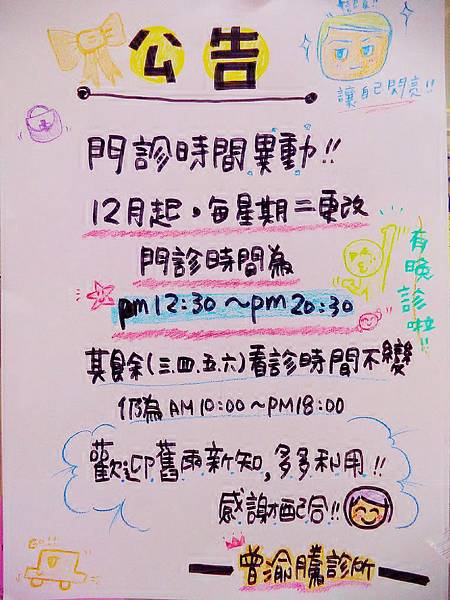 公告
讓自己閃亮!!
門診時間異動!!
12月起,每星期二更改
門診時間為
pm12:30~pm20:30
有晚診啦!!
其餘(三.四.五.六)看診時間不變
仍為AM10:00~PM18:00
歡迎舊雨新知,多多利用!!
感謝配合!!
GO!!
曾渝騰診所